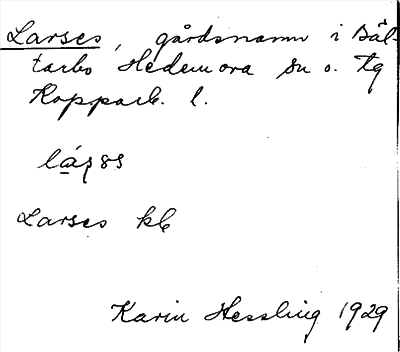 Larses, gårdsnamn i Bäl-
tarbo Hedemora sn o. tg
Kopparb. l.
Larses kb
Karin Hessling 1929